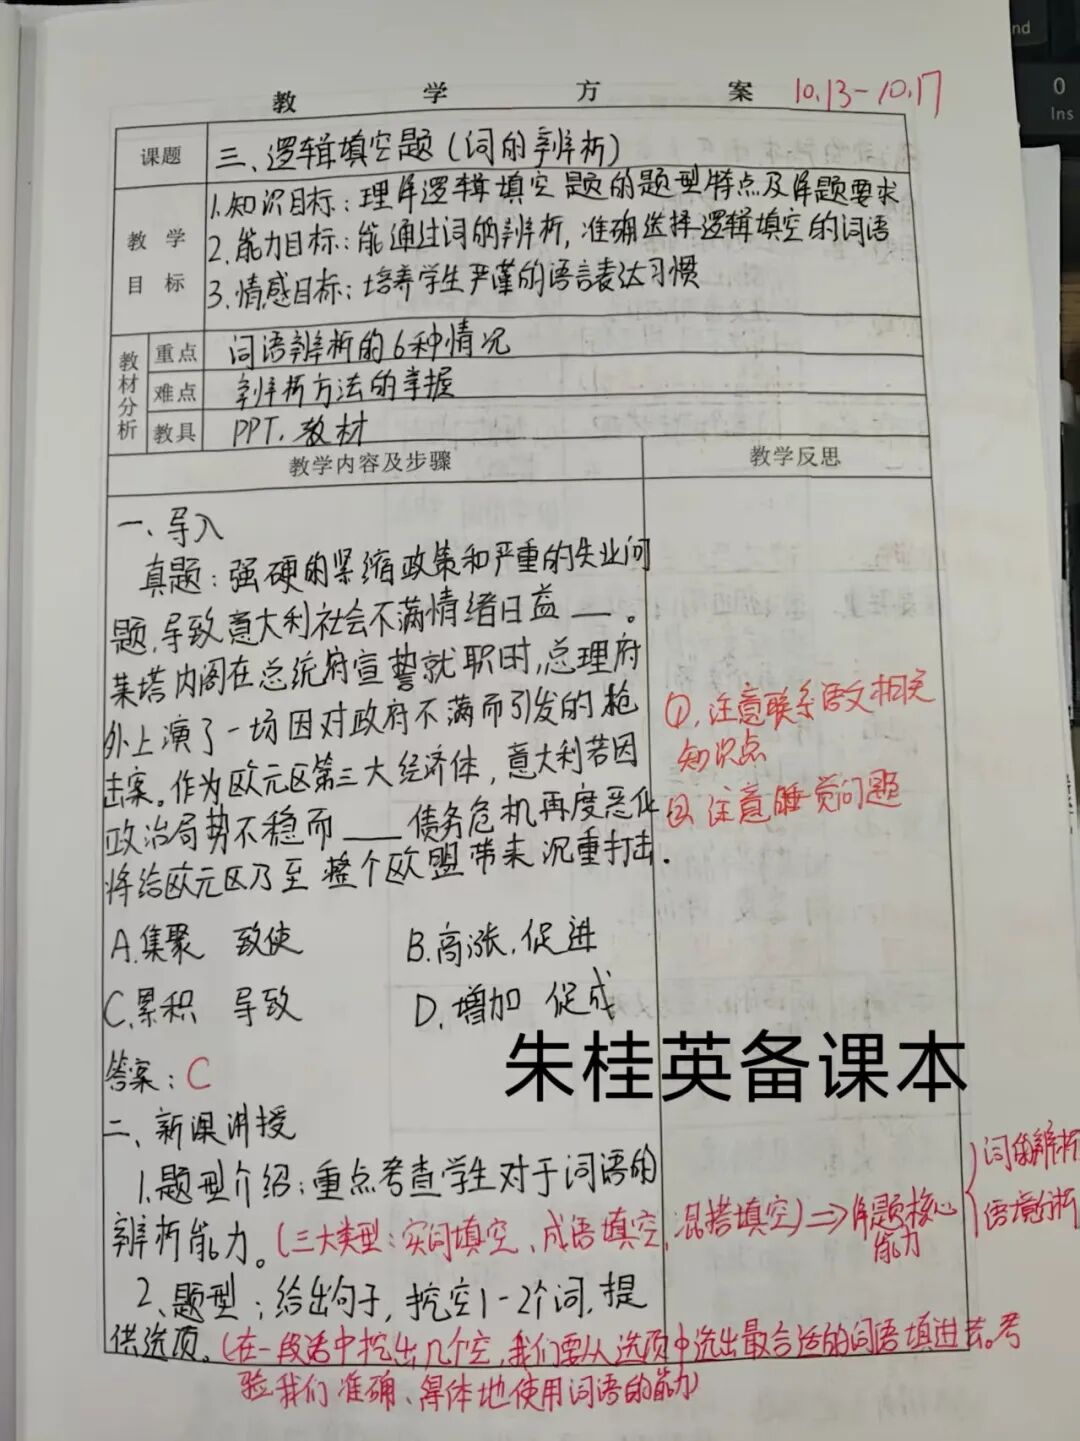 教 学 方 案 10.13-10.17
课题 三、逻辑填空题(词的辨析)
教学目标
1.知识目标:理解逻辑填空题的题型特点及解题要求
2.能力目标:能通过词的辨析,准确选择逻辑填空的词语
3.情感目标:培养学生严谨的语言表达习惯
教材分析
重点 词语辨析的6种情况
难点 辨析方法的掌握
教具 PPT、教材
教学内容及步骤 教学反思
一、导入
真题:强硬的紧缩政策和严重的失业问
题,导致意大利社会不满情绪日益__。
莱塔内阁在总统府宣誓就职时,总理府
外上演了一场因对政府不满而引发的枪
击案。作为欧元区第三大经济体,意大利若因
政治局势不稳而___债务危机再度恶化
将给欧元区乃至整个欧盟带来沉重打击.
①.注意联系语文相关
知识点
②.注意睡觉问题
A.集聚 致使 B.高涨.促进
C.累积 导致 D.增加 促成
答案:C
朱桂英备课本
二、新课讲授
1.题型介绍:重点考查学生对于词语的
辨析能力。(三大类型:实词填空、成语填空、混搭填空)⇒解题核心
能力
词的辨析
语境分析
2、题型:给出句子,挖空1-2个词,提
供选项。(在一段话中挖出几个空,我们要从选项中选出最合适的词语填进去。考
验我们准确、得体地使用词语的能力)